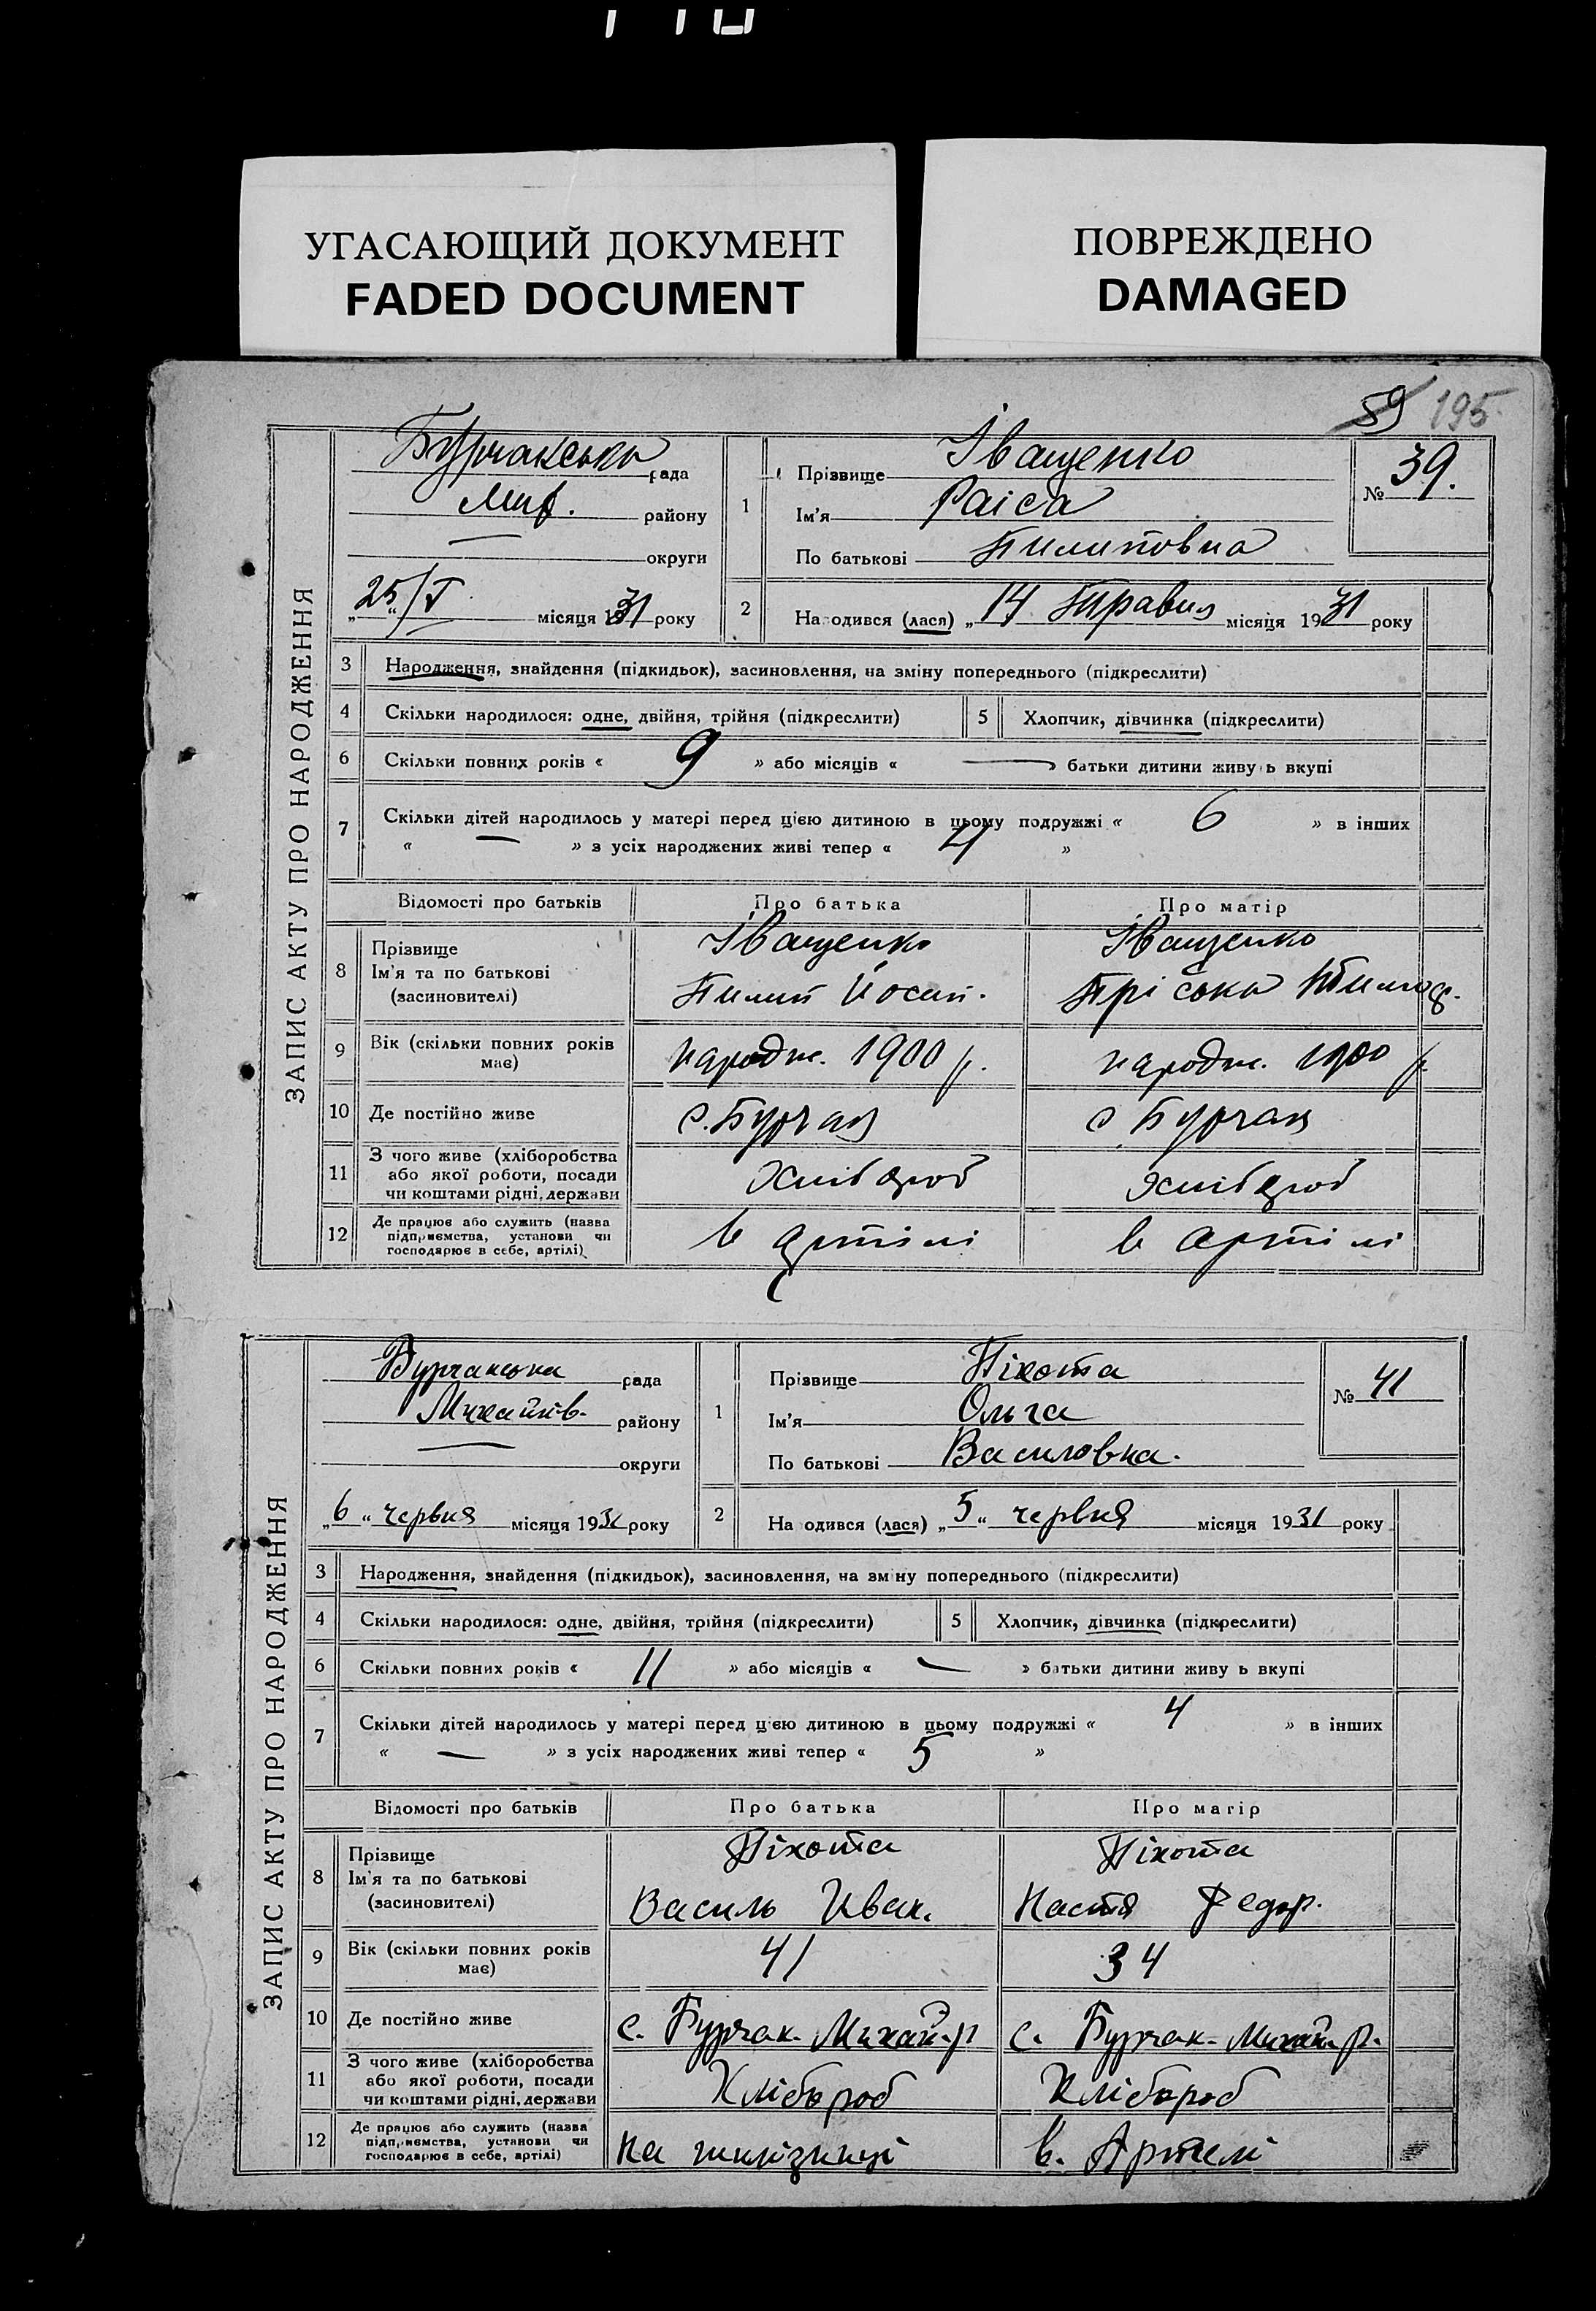 УГАСАЮЩИЙ ДОКУМЕНТ
FADED DOCUMENT
ПОВРЕЖДЕНО
DAMAGED
59 195
ЗАПИС АКТУ ПРО НАРОДЖЕННЯ
Бурчакська рада
Мих. району
округи
25/V місяця 1931 року
1 Прізвище Іващенко
Ім'я Раіса
По батькові Пилиповна
№ 39.
2 Народився (лася) „14 Травня місяця 1931 року
3 Народження, знайдення (підкидьок), засиновлення, на зміну попереднього (підкреслити)
4 Скільки народилося: одне, двійня, трійня (підкреслити) 5 Хлопчик, дівчинка (підкреслити)
6 Скільки повних років « 9 » або місяців « — » батьки дитини живуть вкупі
7 Скільки дітей народилось у матері перед цією дитиною в цьому подружжі « 6 » в інших
« — » з усіх народжених живі тепер « 4 »
Відомості про батьків Про батька Про матір
8 Прізвище Іващенко Іващенко
Ім'я та по батькові
(засиновителі) Пилип Йосип. Пріська
9 Вік (скільки повних років має) народж. 1900 р. народж. 1900 р.
10 Де постійно живе с. Бурчак с. Бурчак
11 З чого живе (хліборобства
або якої роботи, посади
чи коштами рідні, держави хлібороб хлібороб
12 Де працює або служить (назва
підприємства, установи чи
господарює в себе, артілі) в артілі в артілі
ЗАПИС АКТУ ПРО НАРОДЖЕННЯ
Бурчакська рада
Михайлів. району
округи
„6“ червня місяця 1931 року
1 Прізвище Піхота
Ім'я Ольга
По батькові Василовна.
№ 41
2 На одився (лася) „5“ червня місяця 1931 року
3 Народження, знайдення (підкидьок), засиновлення, на зміну попереднього (підкреслити)
4 Скільки народилося: одне, двійня, трійня (підкреслити) 5 Хлопчик, дівчинка (підкреслити)
6 Скільки повних років « 11 » або місяців « — » батьки дитини живу ь вкупі
7 Скільки дітей народилось у матері перед цією дитиною в цьому подружжі « 4 » в інших
« — » з усіх народжених живі тепер « 5 »
Відомості про батьків Про батька Про матір
8 Прізвище Піхота Піхота
Ім'я та по батькові
(засиновителі) Василь Иван. Настя Федор.
9 Вік (скільки повних років має) 41 34
10 Де постійно живе с. Бурчак. Михай. р с. Бурчак. Михай. р.
11 З чого живе (хліборобства
або якої роботи, посади
чи коштами рідні, держави Хлібороб Хлібороб
12 Де працює або служить (назва
підприємства, установи чи
господарює в себе, артілі) на в. Артелі